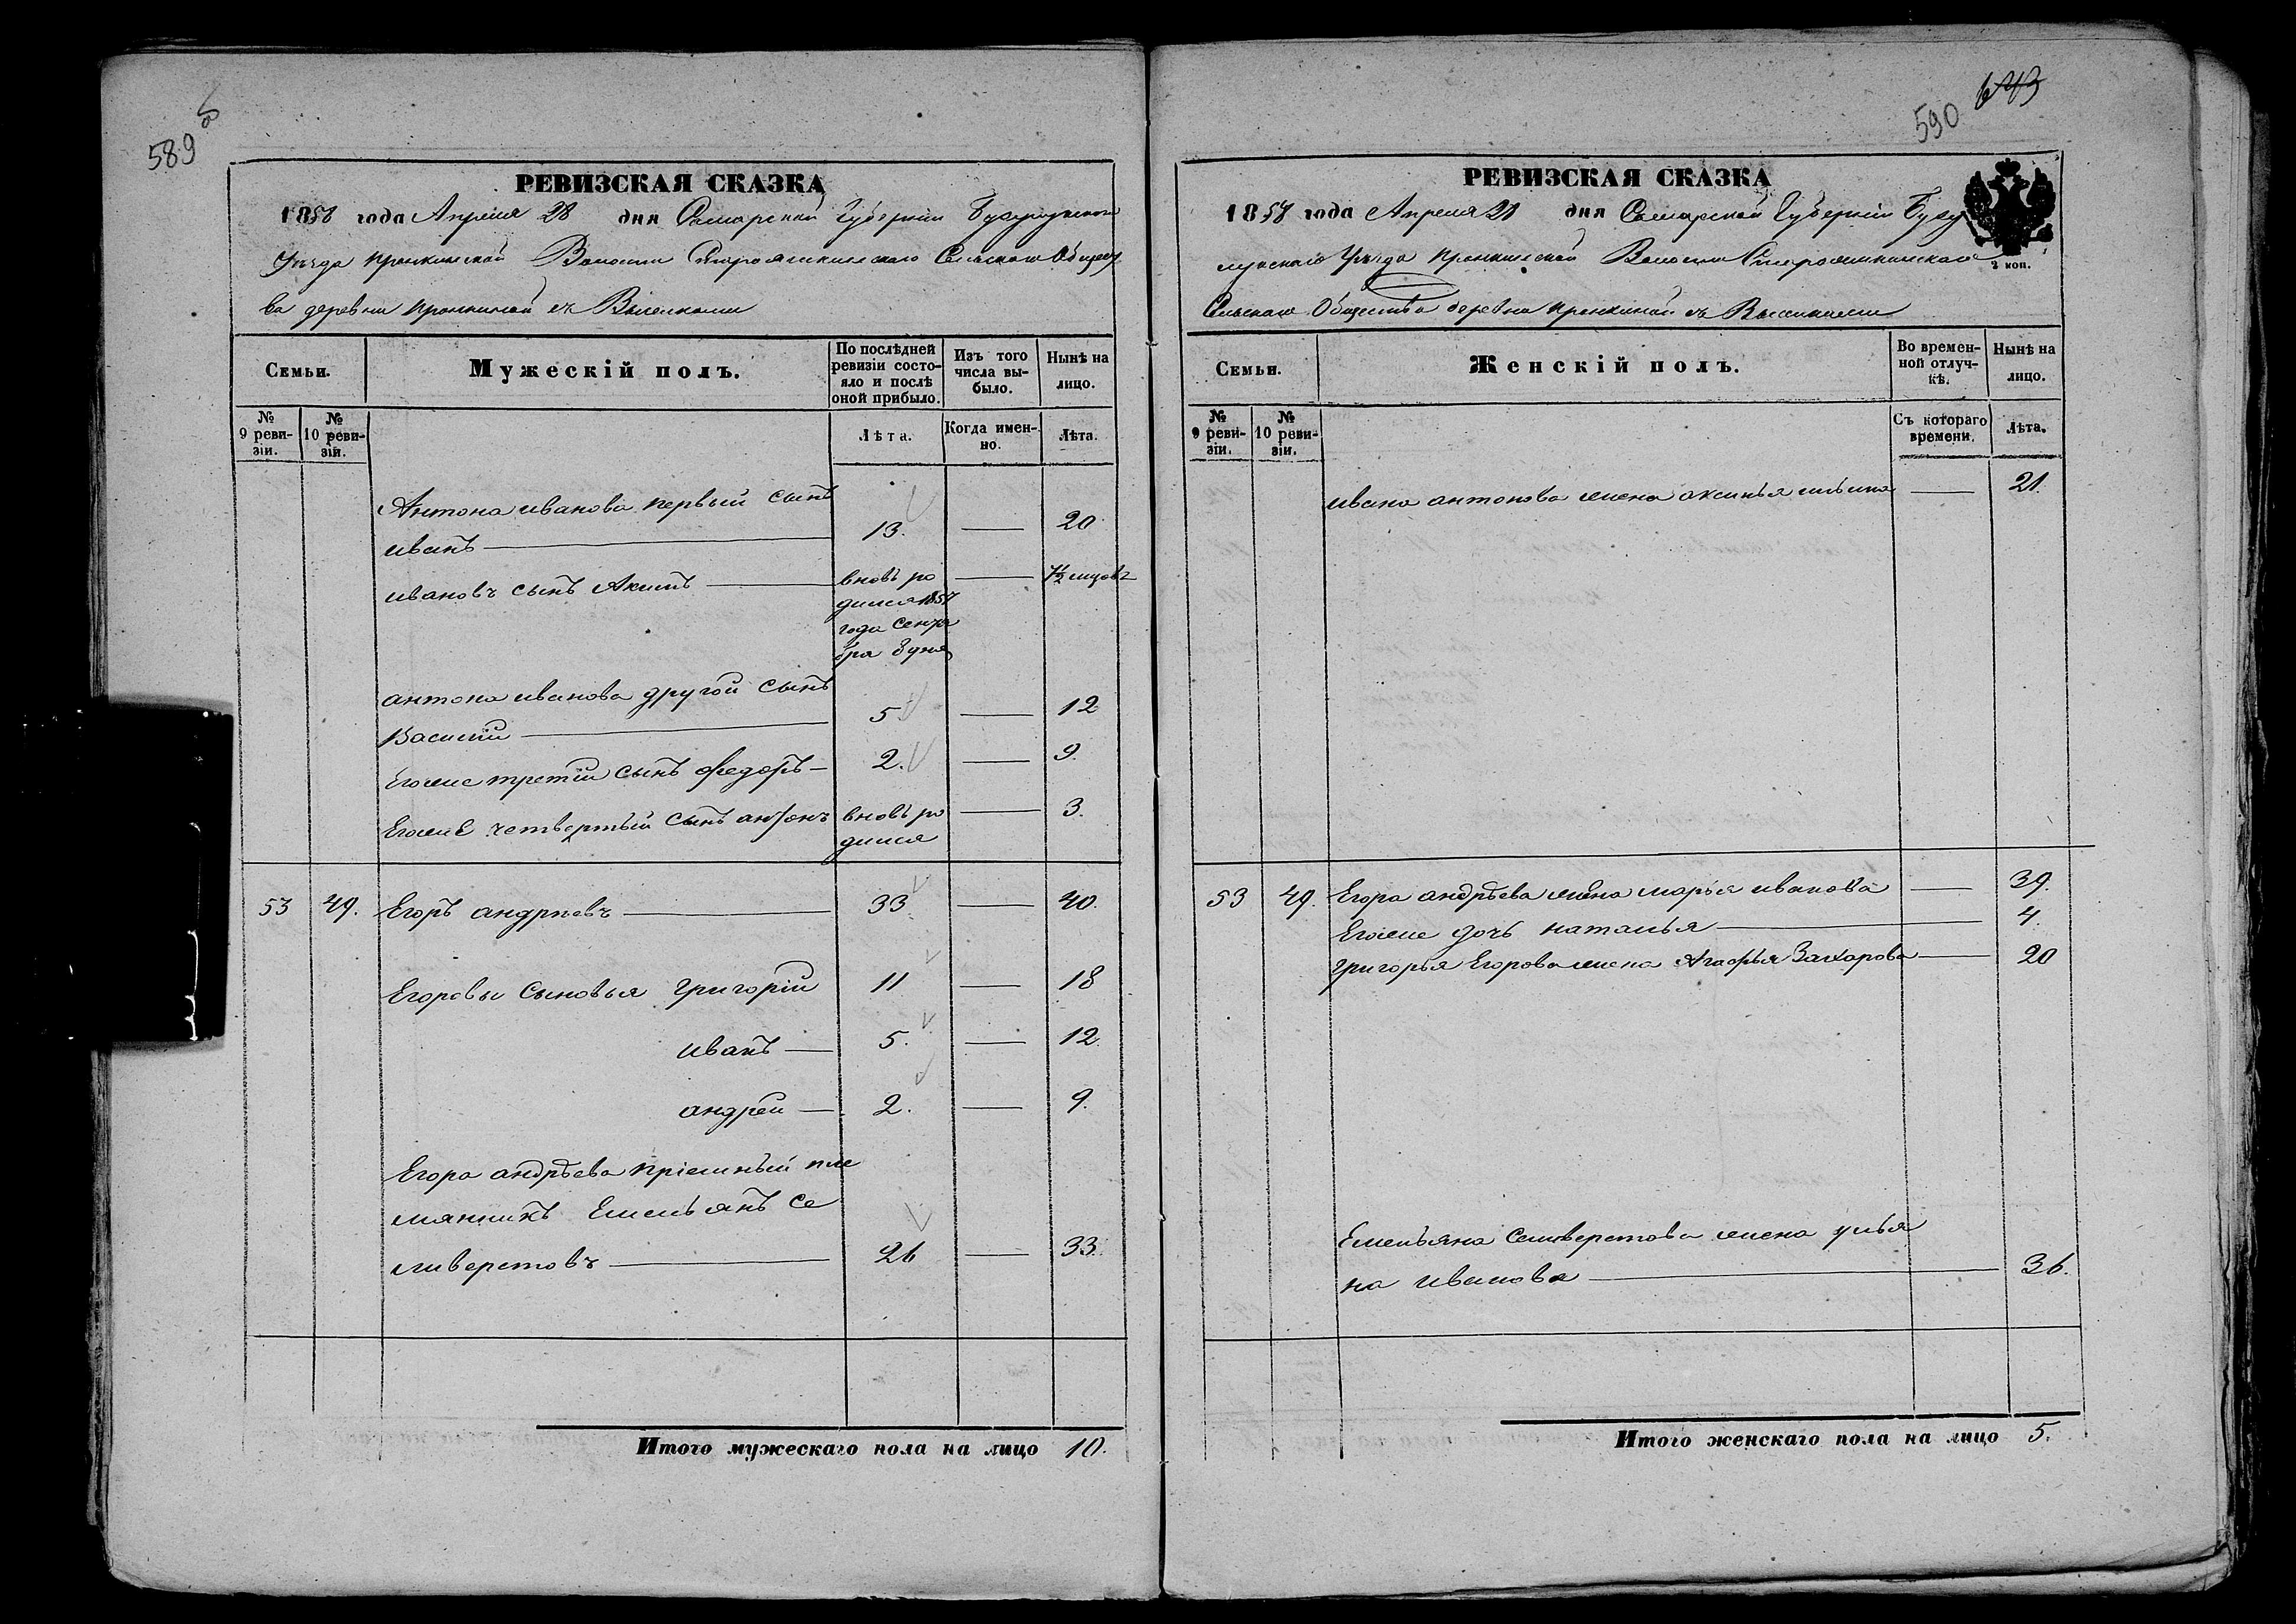 589 об
РЕВИЗСКАЯ СКАЗКА
1858 года Апреля 28 дня Самарской Губерніи Бузулукскаго
Уѣзда Пронкинской Волости Сельскаго Общест
ва деревни Пронкиной съ Выселками
Семьи.
Мужескій полъ.
По послѣдней ревизіи состояло и послѣ оной прибыло.
Изъ того числа выбыло.
Нынѣ на лицо.
№ 9 ревизіи.
№ 10 ревизіи.
Лѣта.
Когда именно.
Лѣта.
Антона иванова первый сынъ
иванъ — 13. — 20
ивановъ сынъ Акимъ — вновь ро — 7½ мцовъ
дился 1857
года Сентя
бря дня
антона иванова другой сынъ
Василій — 5 — 12
Егоже третій сынъ Федоръ — 2. — 9.
Егоже четвертый сынъ антонъ вновь ро — 3.
дился
53 49. Егоръ андреевъ — 33 — 40.
Егоровы сыновья Григорій 11 — 18
иванъ — 5. — 12.
андрей — 2. — 9.
Егора андрѣева пріемный пле
мянникъ Емельянъ Се
ливерстовъ — 26 — 33.
Итого мужескаго пола на лицо 10.
590 643
РЕВИЗСКАЯ СКАЗКА
1858 года Апреля 28 дня Самарской Губерніи Бузу
лукскаго Уѣзда Пронкинской Волости
Сельскаго Общества деревни Пронкиной съ Выселками
2 коп.
Семьи.
Женскій полъ.
Во временной отлучкѣ.
Нынѣ на лицо.
№ 9 ревизіи.
№ 10 ревизіи.
Съ котораго времени.
Лѣта.
ивана антонова жена аксинья ильина — 21.
53 49. Егора андрѣева жена марья иванова — 39.
Егоже дочь наталья — 4.
григорья Егорова жена Агафья Захарова — 20
Емельяна Селиверстова жена улья
на иванова — 36.
Итого женскаго пола на лицо 5.